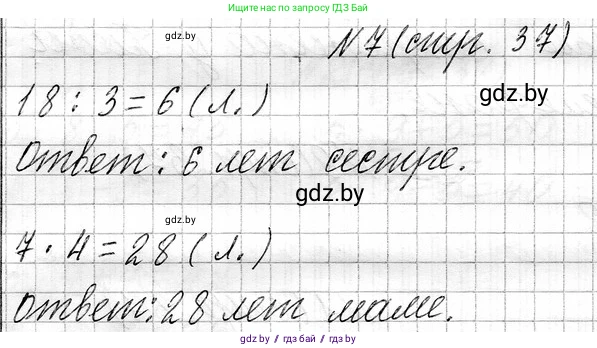 Решение заданий ищи по запросу ГДЗ Бай
gdz.by
N 7 (стр. 37)
18 : 3 = 6 (л.)
gdz.by
Ответ: 6 лет сестре.
gdz.by
gdz.by
7 · 4 = 28 (л.)
Ответ: 28 лет маме.
gdz.by / гдз бай / gdz.by